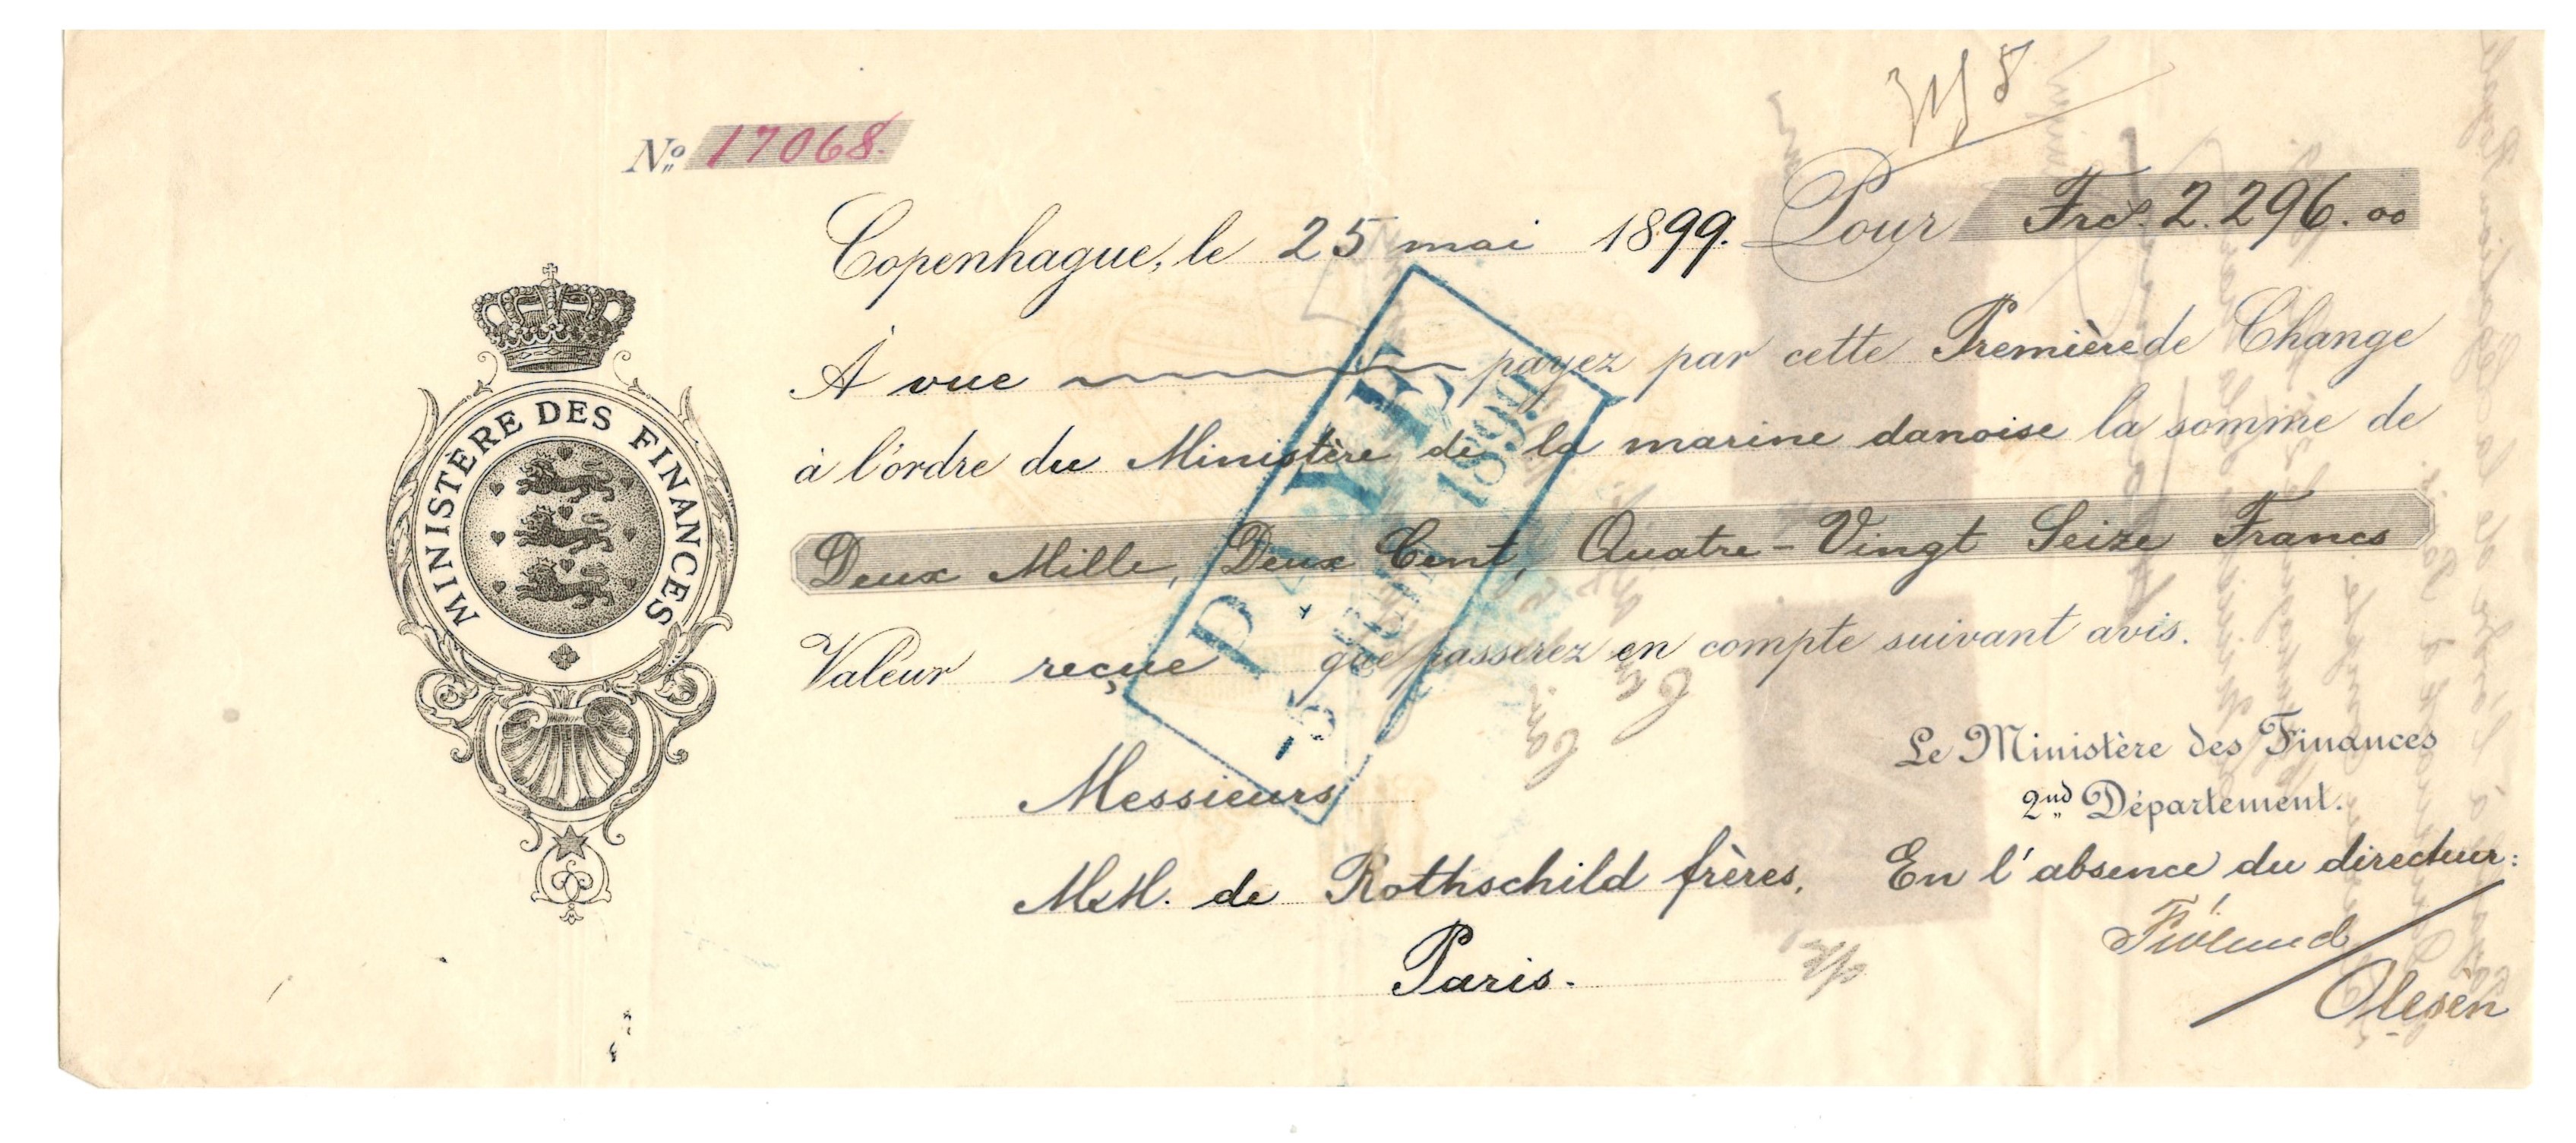 No 17068.
Copenhague, le 25 mai 1899. Pour Frcs 2.296.00
À vue payez par cette Première de Change
à l'ordre du Ministère de la marine danoise la somme de
Deux Mille, Deux Cent, Quatre-Vingt Seize Francs
Valeur reçue que passerez en compte suivant avis.
MINISTÈRE DES FINANCES
PAYÉ
-5 1899
Le Ministère des Finances
2nd Département.
Messieurs
MM. de Rothschild frères,
Paris.
En l'absence du directeur:
Olesen